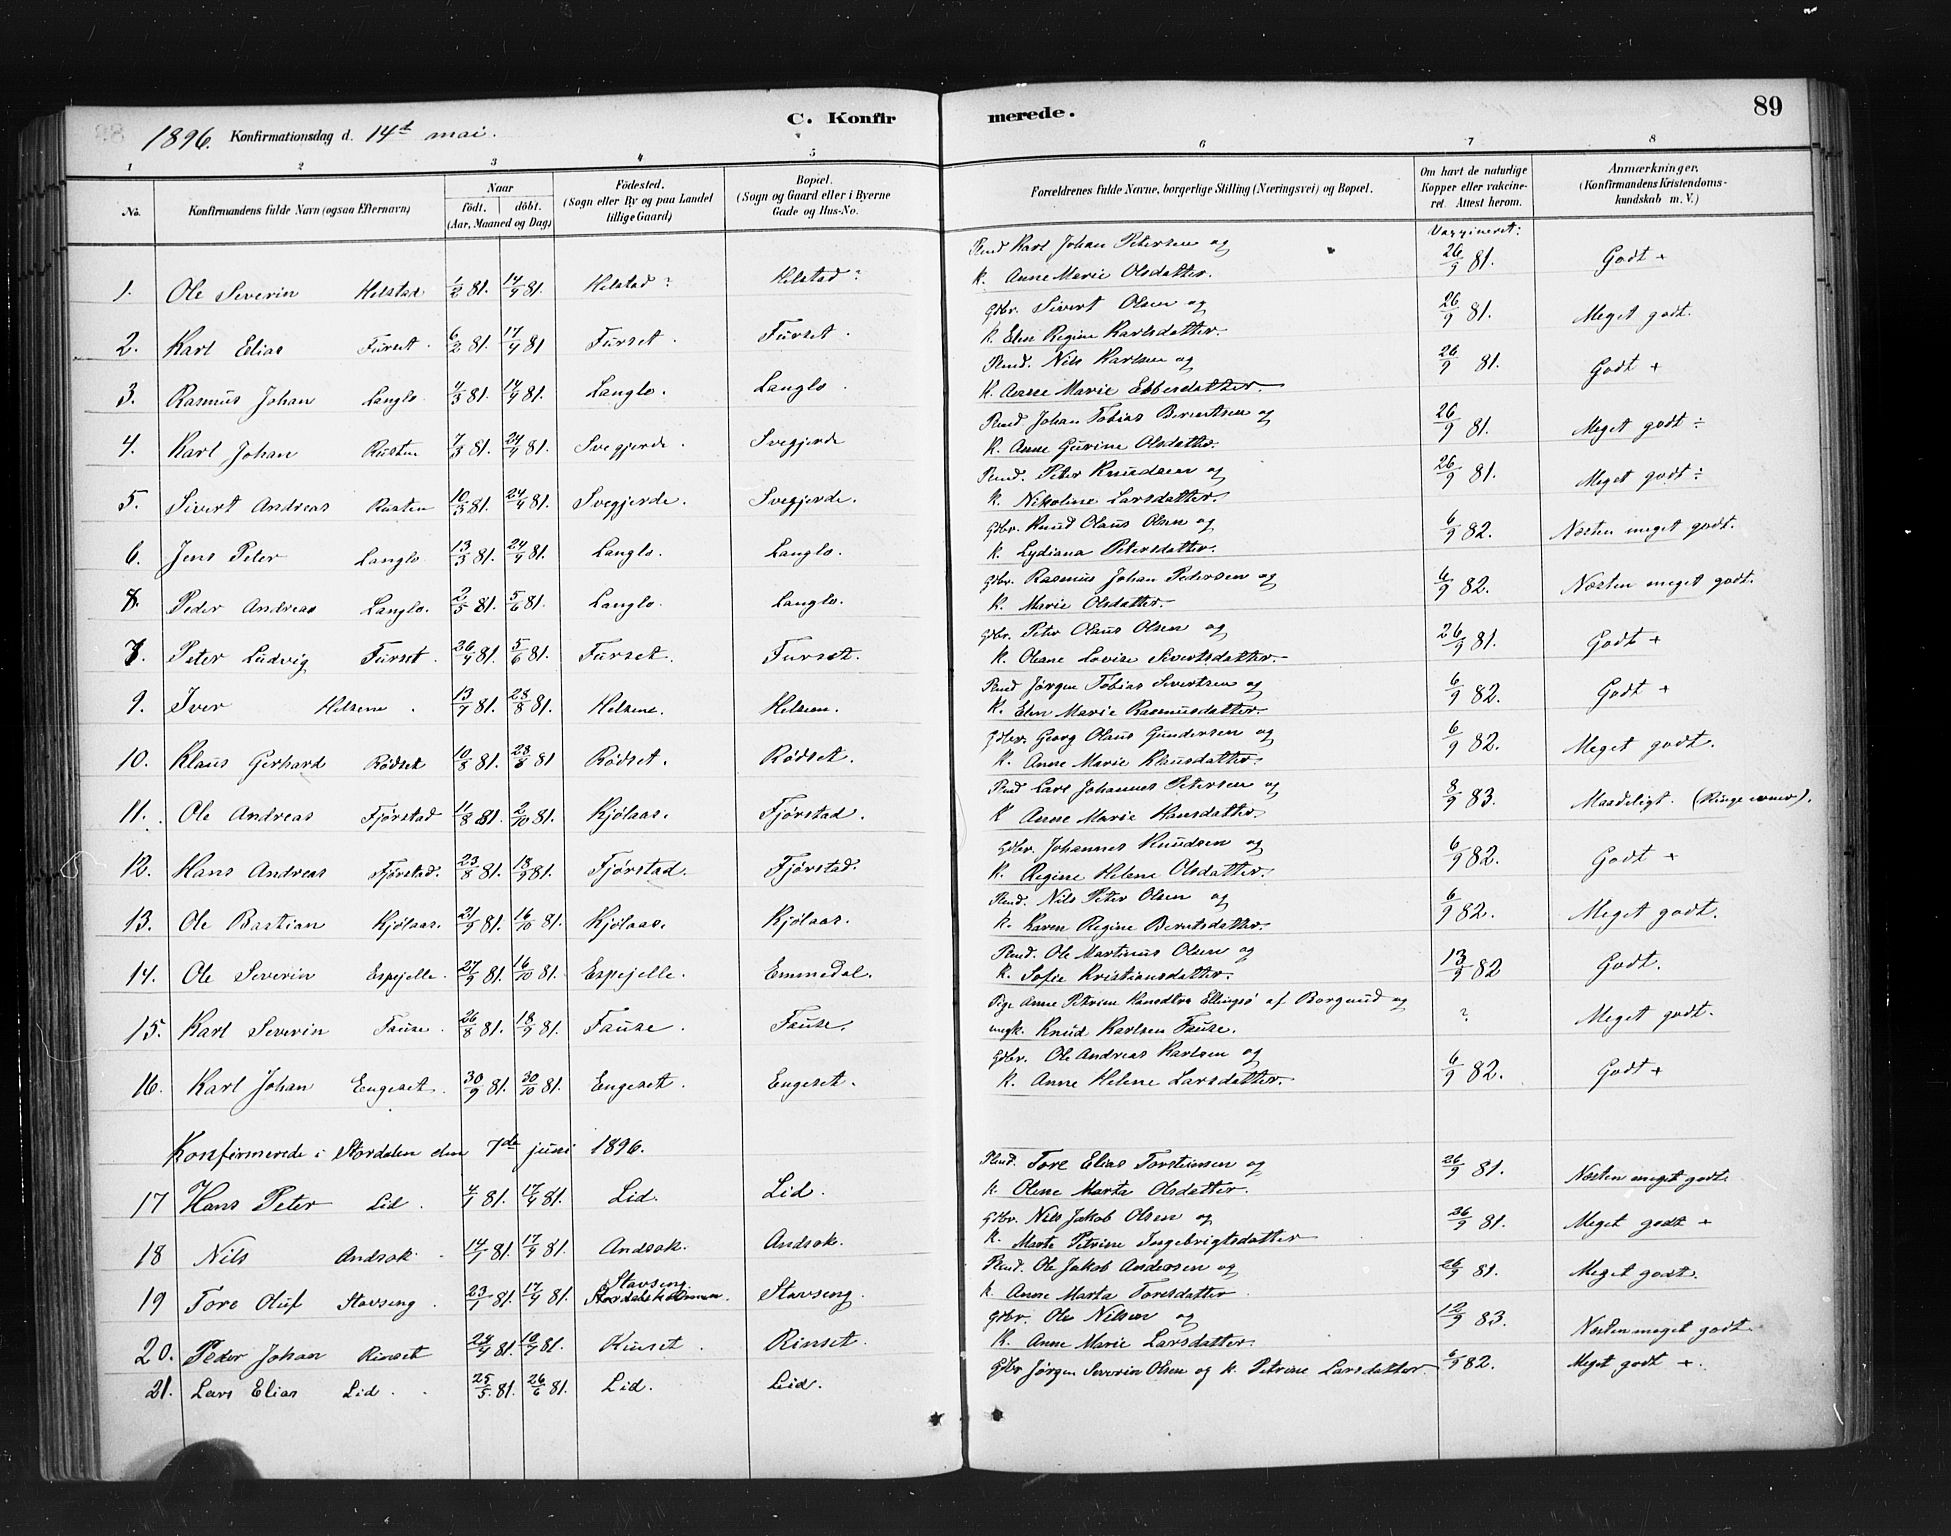 C. Konfirmerede. 89
1896. Konfirmationsdag d. 14de mai.
1 2 3 4 5 6 7 8
No. Konfirmandens fulde Navn (ogsaa Efternavn) Naar født. døbt. (Aar, Maaned og Dag) Fødested. (Sogn eller By og paa Landet tillige Gaard) Bopæl. (Sogn og Gaard eller i Byerne Gade og Hus-No. Forældrenes fulde Navne, borgerlige Stilling (Næringsvei) og Bopæl. Om havt de naturlige Kopper eller vakcineret. Attest herom. Anmærkninger, (Konfirmandens Kristendomskundskab m. V.)
Vaxxineret:
1. Ole Severin Helstad 1/2 81. 14/9 81. Helstad ? Helstad ? Pmd Karl Johan Petersen og K. Anne Marie Olsdatter. 26/9 81. Godt +
2. Karl Elias Furset. 6/2 81. 17/4 81 Furset. Furset. Gbr. Sivert Olsen og K. Elen Regine Karlsdatter. 26/9 81. Meget godt.
3. Rasmus Johan Langlo. 4/3 81. 14/4 81. Langlo. Langlo. Pmd. Nils Karlsen og K. Anne Marie Ebbesdatter. 26/9 81. Godt +
4. Karl Johan Rusten 7/3 81. 24/4 81. Svegjerde. Svegjerde Pmd Johan Tobias Berentsen og K. Anne Gurine Olsdatter. 26/9 81. Meget godt ÷
5. Sivert Andreas Rusten 10/3 81. 24/4 81. Svegjerde. Svegjerde. Pmd. Peter Knudsen og K. Nikoline Larsdatter. 26/9 81. Meget godt ÷
6. Jens Peter Langlo. 13/3 81. 24/4 81. Langlo. Langlo. Gbr. Knud Olaus Olsen og K. Lydiana Petersdatter. 6/9 82. Næsten meget godt.
8. Peder Andreas Langlo. 2/5 81. 5/6 81. Langlo. Langlo. Gbr. Rasmus Johan Pedersen og K. Marie Olsdatter. 6/9 82. Næsten meget godt.
7. Peter Ludvig Furset. 26/4 81. 5/6 81. Furset. Furset. Gbr. Peter Olaus Olsen og K. Oleane Lovise Sivertsdatter. 26/9 81. Godt +
9. Iver Helsene. 13/7 81. 28/8 81. Helsene. Helsem. Pmd Jørgen Tobias Sivertsen og K. Elen Marie Rasmusdatter. 6/9 82. Godt +
10. Klaus Gerhard Rødset 10/8 81. 28/8 81 Rødset. Rødset. Gbr. Georg Olaus Gundersen og K. Anne Marie Klausdatter. 6/9 82. Meget godt.
11. Ole Andreas Fjørstad 11/8 81. 2/10 81. Kjølaas. Fjørstad. Pmd Lars Johannes Petersen og K Anne Marie Hansdatter. 8/9 83. Maadeligt. (Ringe evner).
12. Hans Andreas Fjørstad. 23/8 81. 18/9 81. Fjørstad. Fjørstad. Gbr. Johannes Knudsen og K. Regine Helene Olsdatter. 6/9 82. Godt +
13. Ole Bastian Kjølaas. 21/9 81. 16/10 81. Kjølaas. Kjølaas. Pmd. Nils Peter Olsen og K. Karen Regine Berntsdatter. 6/9 82. Meget godt.
14. Ole Severin Espejelle. 27/9 81. 16/10 81. Espejelle. Emmedal. Pmd. Ole Martinus Olsen og K. Sofie Kristiansdatter. 13/9 82 Godt.
15. Karl Severin Fause. 26/8 81. 18/9 81. Fause. Fause. Pige Anne Petrine Hansdtr Ellingsø af Borgund og ungk. Knud Karlsen Fause. ? Meget godt.
16. Karl Johan Engeset. 30/9 81. 30/10 81. Engeset. Engeset. Gbr. Ole Andreas Karlsen og K. Anne Helene Larsdatter. 6/9 82. Godt +
Konfirmerede i Stordalen den 7de juni 1896.
17 Hans Peter Lid. 4/1 81. 17/4 81. Lid. Lid. Pmd. Tore Elias Torstensen og K. Oline Marta Olsdatter. 26/9 81. Næsten meget godt.
18 Nils Andsok. 14/1 81. 17/4 81. Andsok. Andsok. Gbr. Nils Jakob Olsen og K. Marte Petrine Ingebrigtsdatter 26/9 81. Meget godt +
19 Tore Oluf Stavseng. 23/1 81. 17/4 81. Stavseng. Stavseng. Pmd. Ole Jakob Andersen og K. Anne Marta Toresdatter. 26/9 81. Meget godt.
20. Peder Johan Rinset 24/4 81. 10/7 81. Rinset. Rinset. Gbr. Ole Nilsen og K. Anne Marie Larsdatter 12/9 83. Næsten meget godt.
21. Lars Elias Lid. 25/5 81. 26/6 81. Lid. Lid. Gbr Jørgen Severin Olsen og K. Petrine Larsdatter. 6/9 82. Meget godt +.